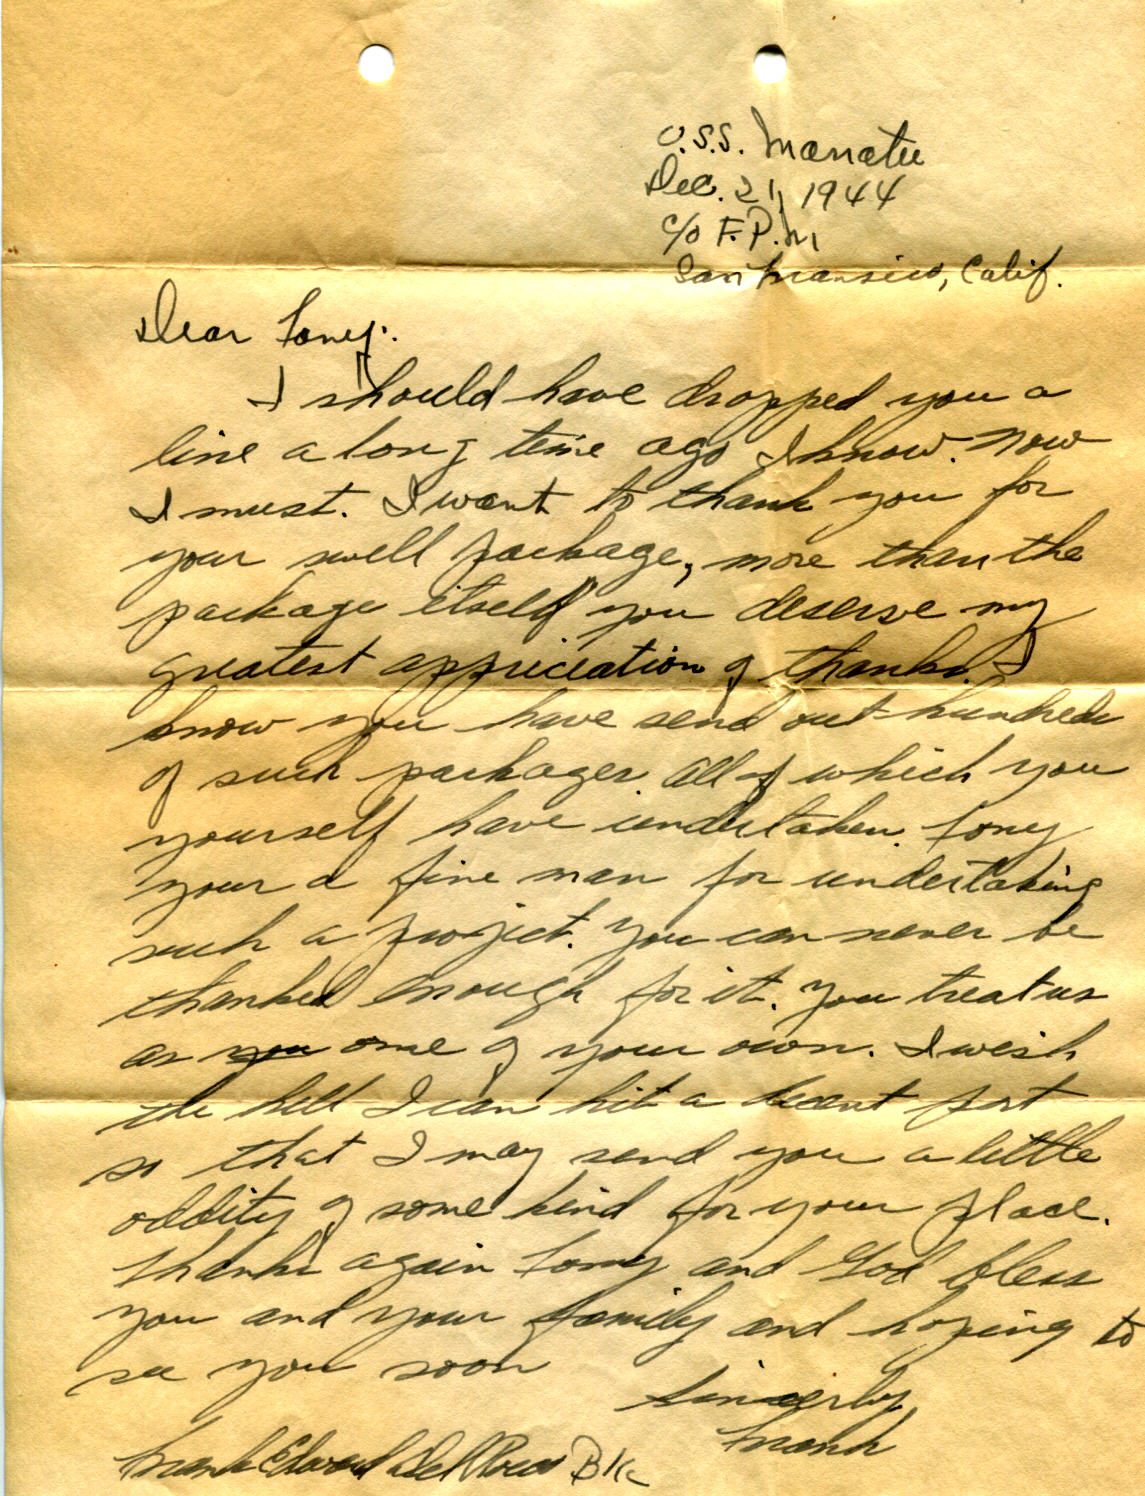 U.S.S. Manatee
Dec. 21, 1944
c/o F.P.M
San Fransico, Calif.
Dear Tony:
I should have dropped you a
line a long time ago I know. Now
I must. I want to thank you for
your swell package, more than the
package itself you deserve my
greatest appriciation of thanks. I
know you have send out hundreds
of such packages. All of which you
yourself have undertaken. Tony
your a fine man for undertaking
such a project. You can never be
thanked enough for it. You treat us
as you one of your own. I wish
the hell I can hit a decent port
so that I may send you a little
oddity of some kind for your place.
Thanks again Tony and God bless
you and your family and hoping to
see you soon
Sincerly
Frank
Frank Edward Del